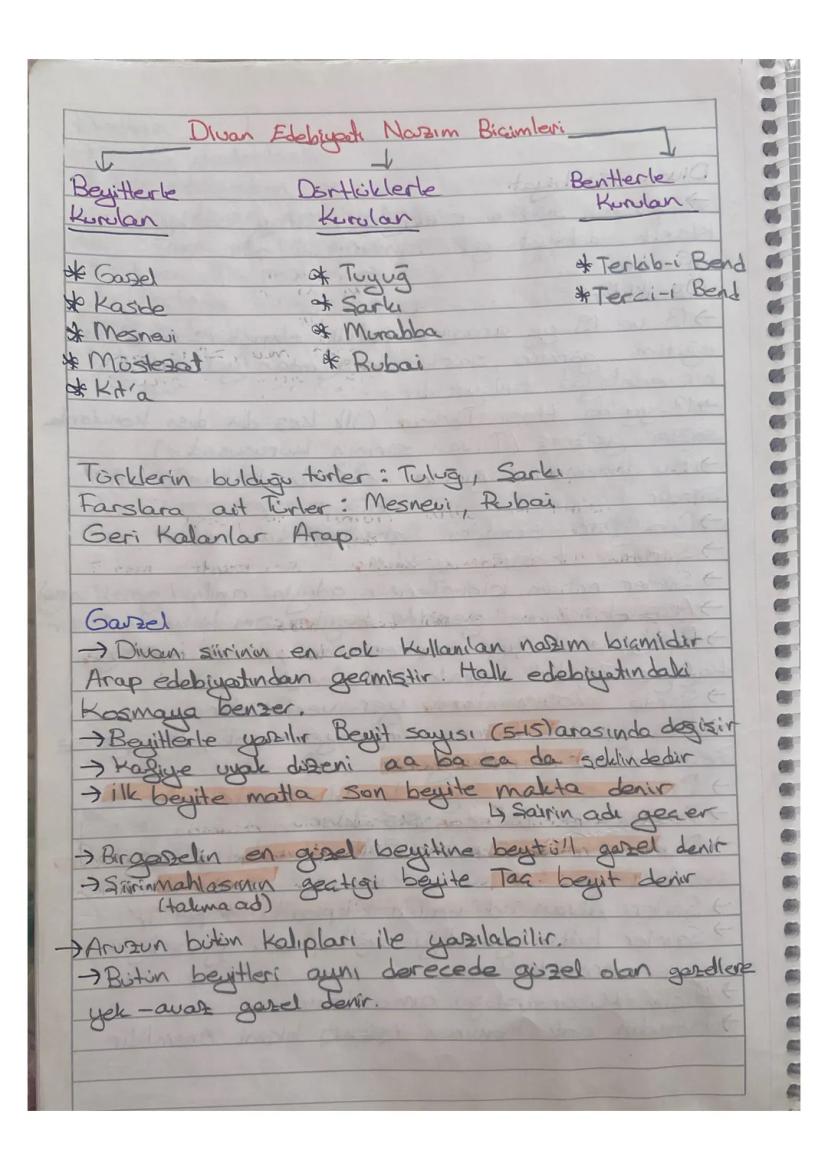 Divan Edebiyatı Nazım Biçimleri
Beyitlerle Kurulan
Dörtlüklerle Kurulan
Bentlerle Kurulan
* Gazel
* Kaside
* Mesnevi
* Müstezat
* Kıt'a
* Tuyuğ
* Şarkı
* Murabba
* Rubai
* Terkib-i Bend
* Terci-i Bend
Türklerin bulduğu türler : Tuluğ, Şarkı
Farslara ait Türler : Mesnevi, Rubai
Geri Kalanlar Arap
Gazel
→ Divan şiirinin en çok kullanılan nazım biçimidir
Arap edebiyatından geçmiştir. Halk edebiyatındaki
Koşmaya benzer.
→ Beyitlerle yazılır Beyit sayısı (5-15) arasında değişir
→ Kafiye uyak düzeni aa ba ca da şeklindedir
→ ilk beyite matla son beyite makta denir
↳ Şairin adı geçer
→ Bir gazelin en güzel beyitine beytü'l gazel denir
→ Şiirin mahlasının geçtiği beyite Taç beyit denir
(takma ad)
→ Aruzun bütün kalıpları ile yazılabilir.
→ Bütün beyitleri aynı derecede güzel olan gazellere
yek-avaz gazel denir.